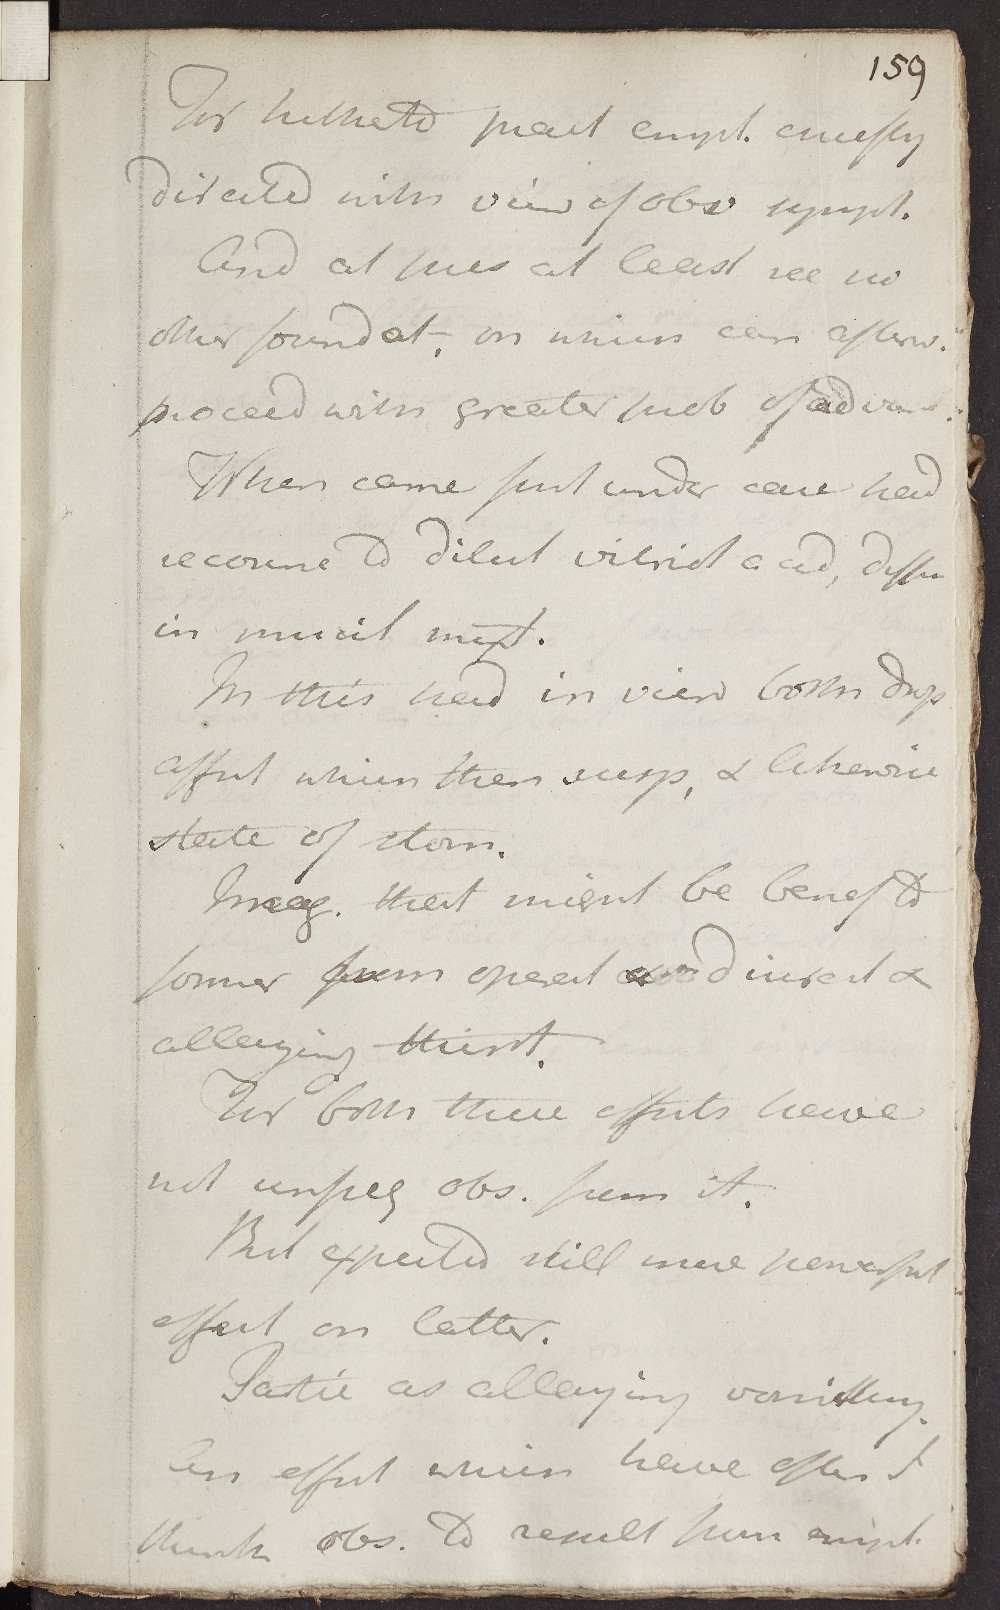 159
For hitherto pract empl. chiefly
directed with view of obv sympt.
And at pres at least see no
other foundat, on which can afterw.
proceed with greater prob of advant.
When came first under care had
recourse to dilut vitriol acid, diffus
in mucil mixt.
In this had in view both drops
affect which then susp, & likewise
state of stom.
Imag. that might be benef to
former from operat as diuret &
allaying thirst.
For both these effects have
not unfreq obs. from it.
But expected still more powerful
effect on latter.
Partic as allaying vomiting.
An effect which have often I
think obs. to result from empl.